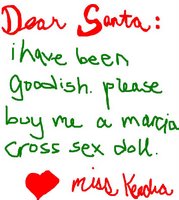 Dear Santa:
i have been
goodish. please
buy me a marcia
cross sex doll.
miss Kendra